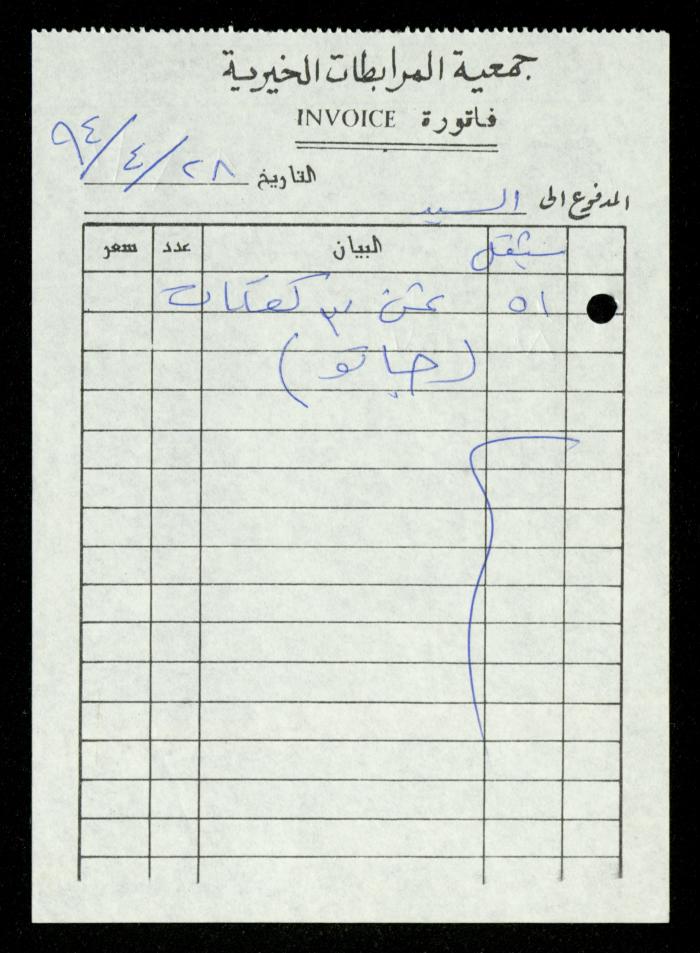 جمعية المرابطات الخيرية
فاتورة INVOICE
التاريخ ٢٨/٤/٩٤
المدفوع الى السيد
شيقل البيان عدد سعر
٥١ ثمن ٣ كعكات
(جاتو)